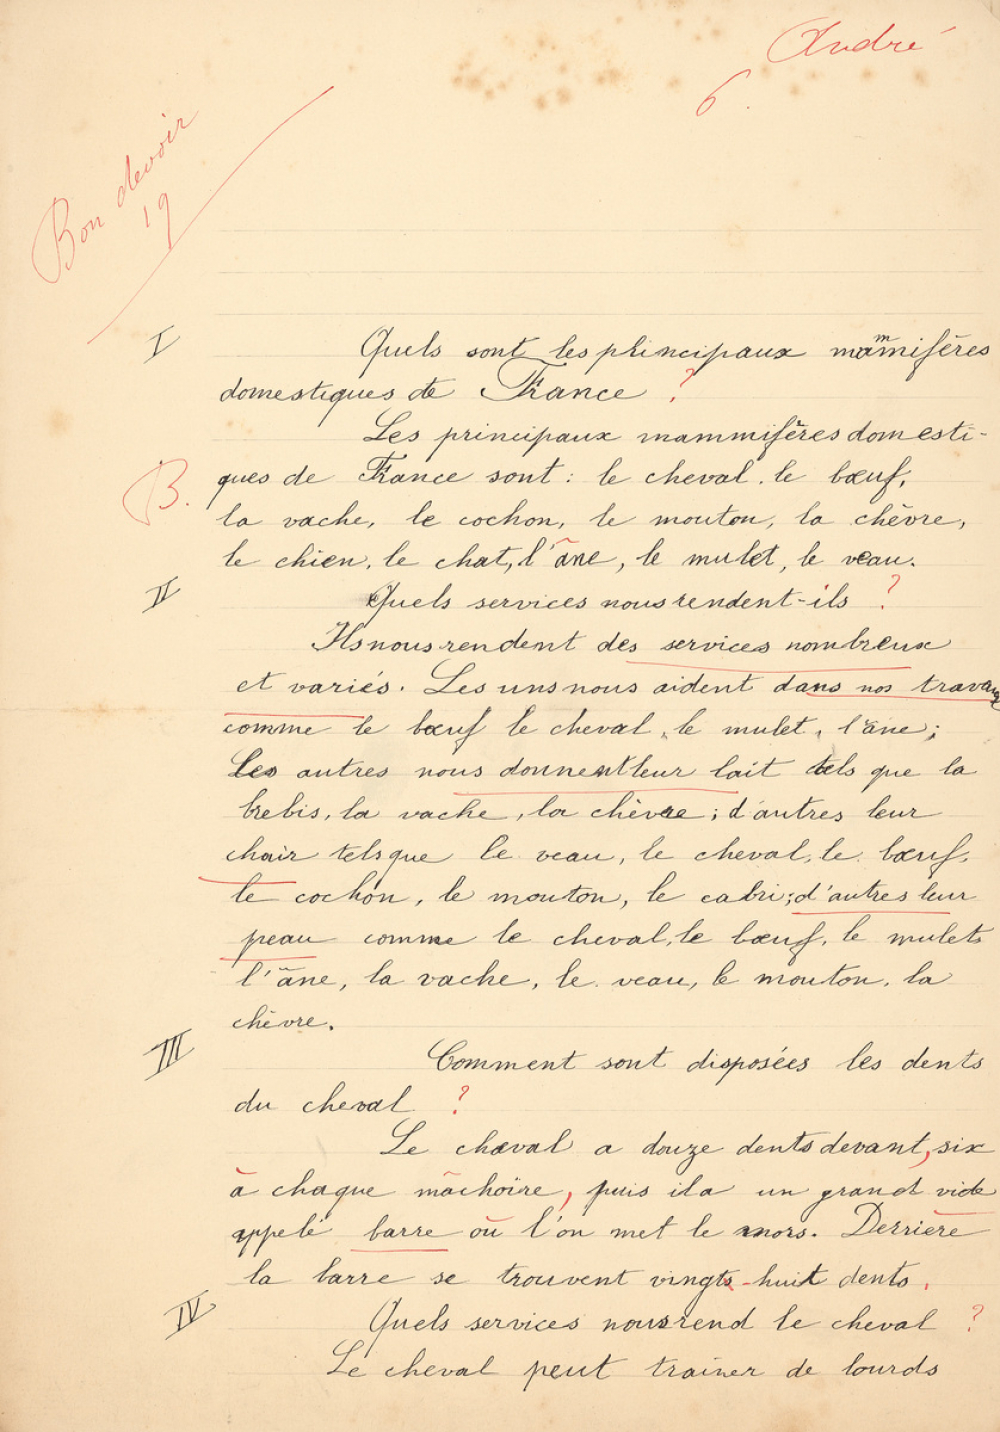 André
6.
Bon devoir
19
I
Quels sont les principaux mammifères
domestiques de France ?
Les principaux mammifères domesti-
ques de France sont : le cheval, le bœuf,
B.
la vache, le cochon, le mouton, la chèvre,
le chien, le chat, l'âne, le mulet, le veau.
II
Quels services nous rendent-ils ?
Ils nous rendent des services nombreux
et variés. Les uns nous aident dans nos travaux
comme le bœuf le cheval, le mulet, l'âne ;
Les autres nous donnent leur lait tels que la
brebis, la vache, la chèvre ; d'autres leur
chair tels que le veau, le cheval, le bœuf,
le cochon, le mouton, le cabri ; d'autres leur
peau comme le cheval, le bœuf, le mulets
l'âne, la vache, le veau, le mouton, la
chèvre.
III
Comment sont disposées les dents
du cheval ?
Le cheval a douze dents devant, six
à chaque mâchoire, puis il a un grand vide
appelé barre où l'on met le mors. Derrière
la barre se trouvent vingts-huit dents.
IV
Quels services nous rend le cheval ?
Le cheval peut trainer de lourds